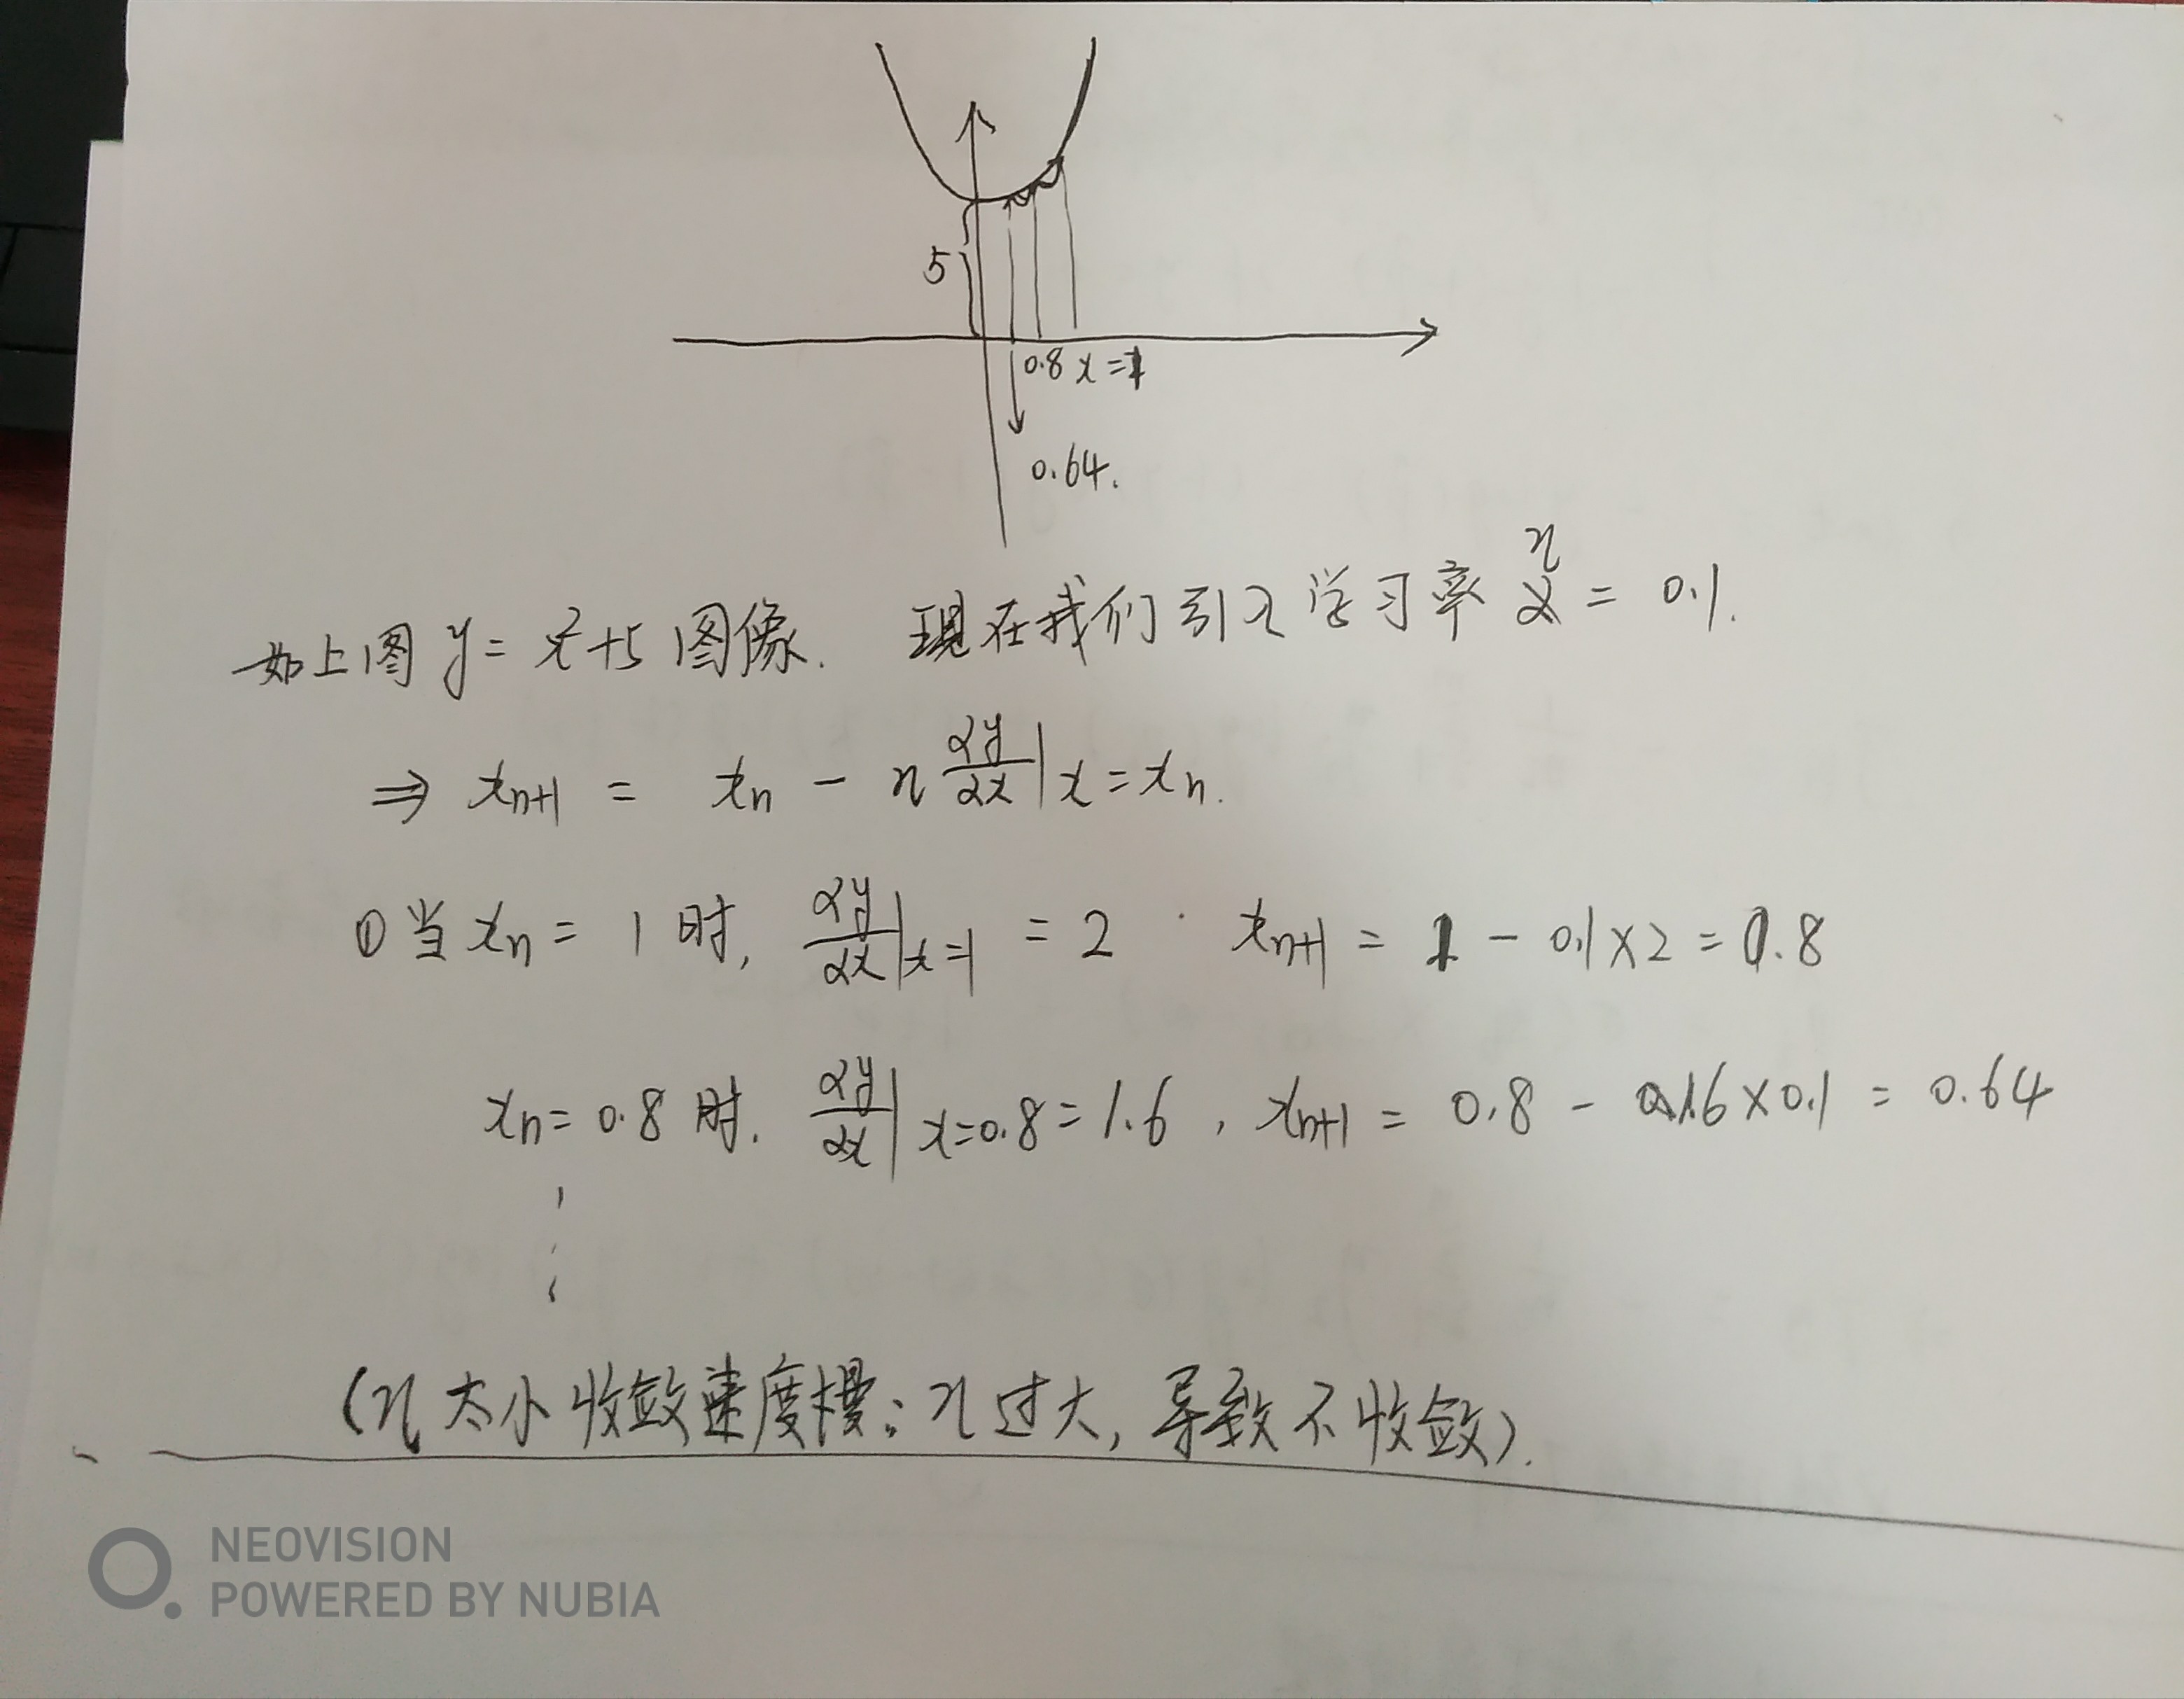 5
0.8 x=1
0.64.
如上图 y = x²+5 图像. 现在我们引入学习率 η = 0.1.
⇒ xn+1 = xn - η ∂y/∂x | x=xn.
① 当 xn = 1 时, ∂y/∂x | x=1 = 2 · xn+1 = 1 - 0.1×2 = 0.8
xn = 0.8 时. ∂y/∂x | x=0.8 = 1.6, xn+1 = 0.8 - 1.6×0.1 = 0.64
(η 太小收敛速度慢; η 过大, 导致不收敛).
NEOVISION
POWERED BY NUBIA